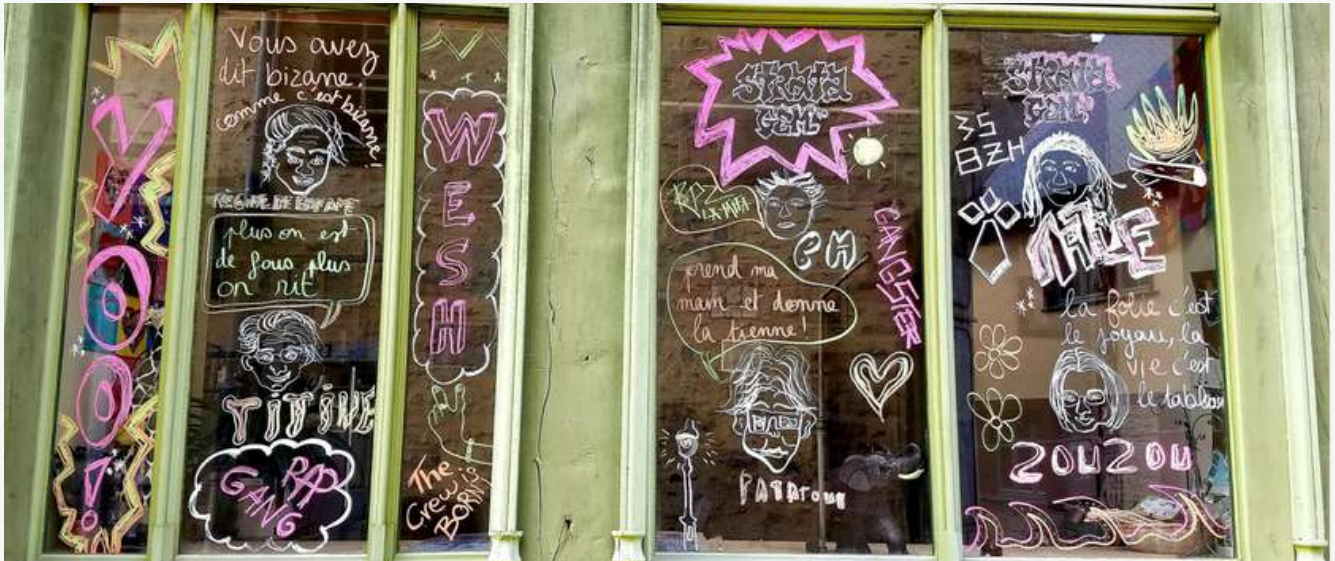 YOOO!
Vous avez
dit bizarre.
comme c'est bizarre!
plus on est
de fous plus
on rit
TITINE
RAP
GANG
WESH
The
Crew is
BORN
STRATA
GEM
RPZ
EH
GANGSTER
prend ma
main et donne
la tienne!
PATATOUM
STRATA
GEM
35
BZH
la folie c'est
le joyau, la
vie c'est
le tableau
ZOUZOU